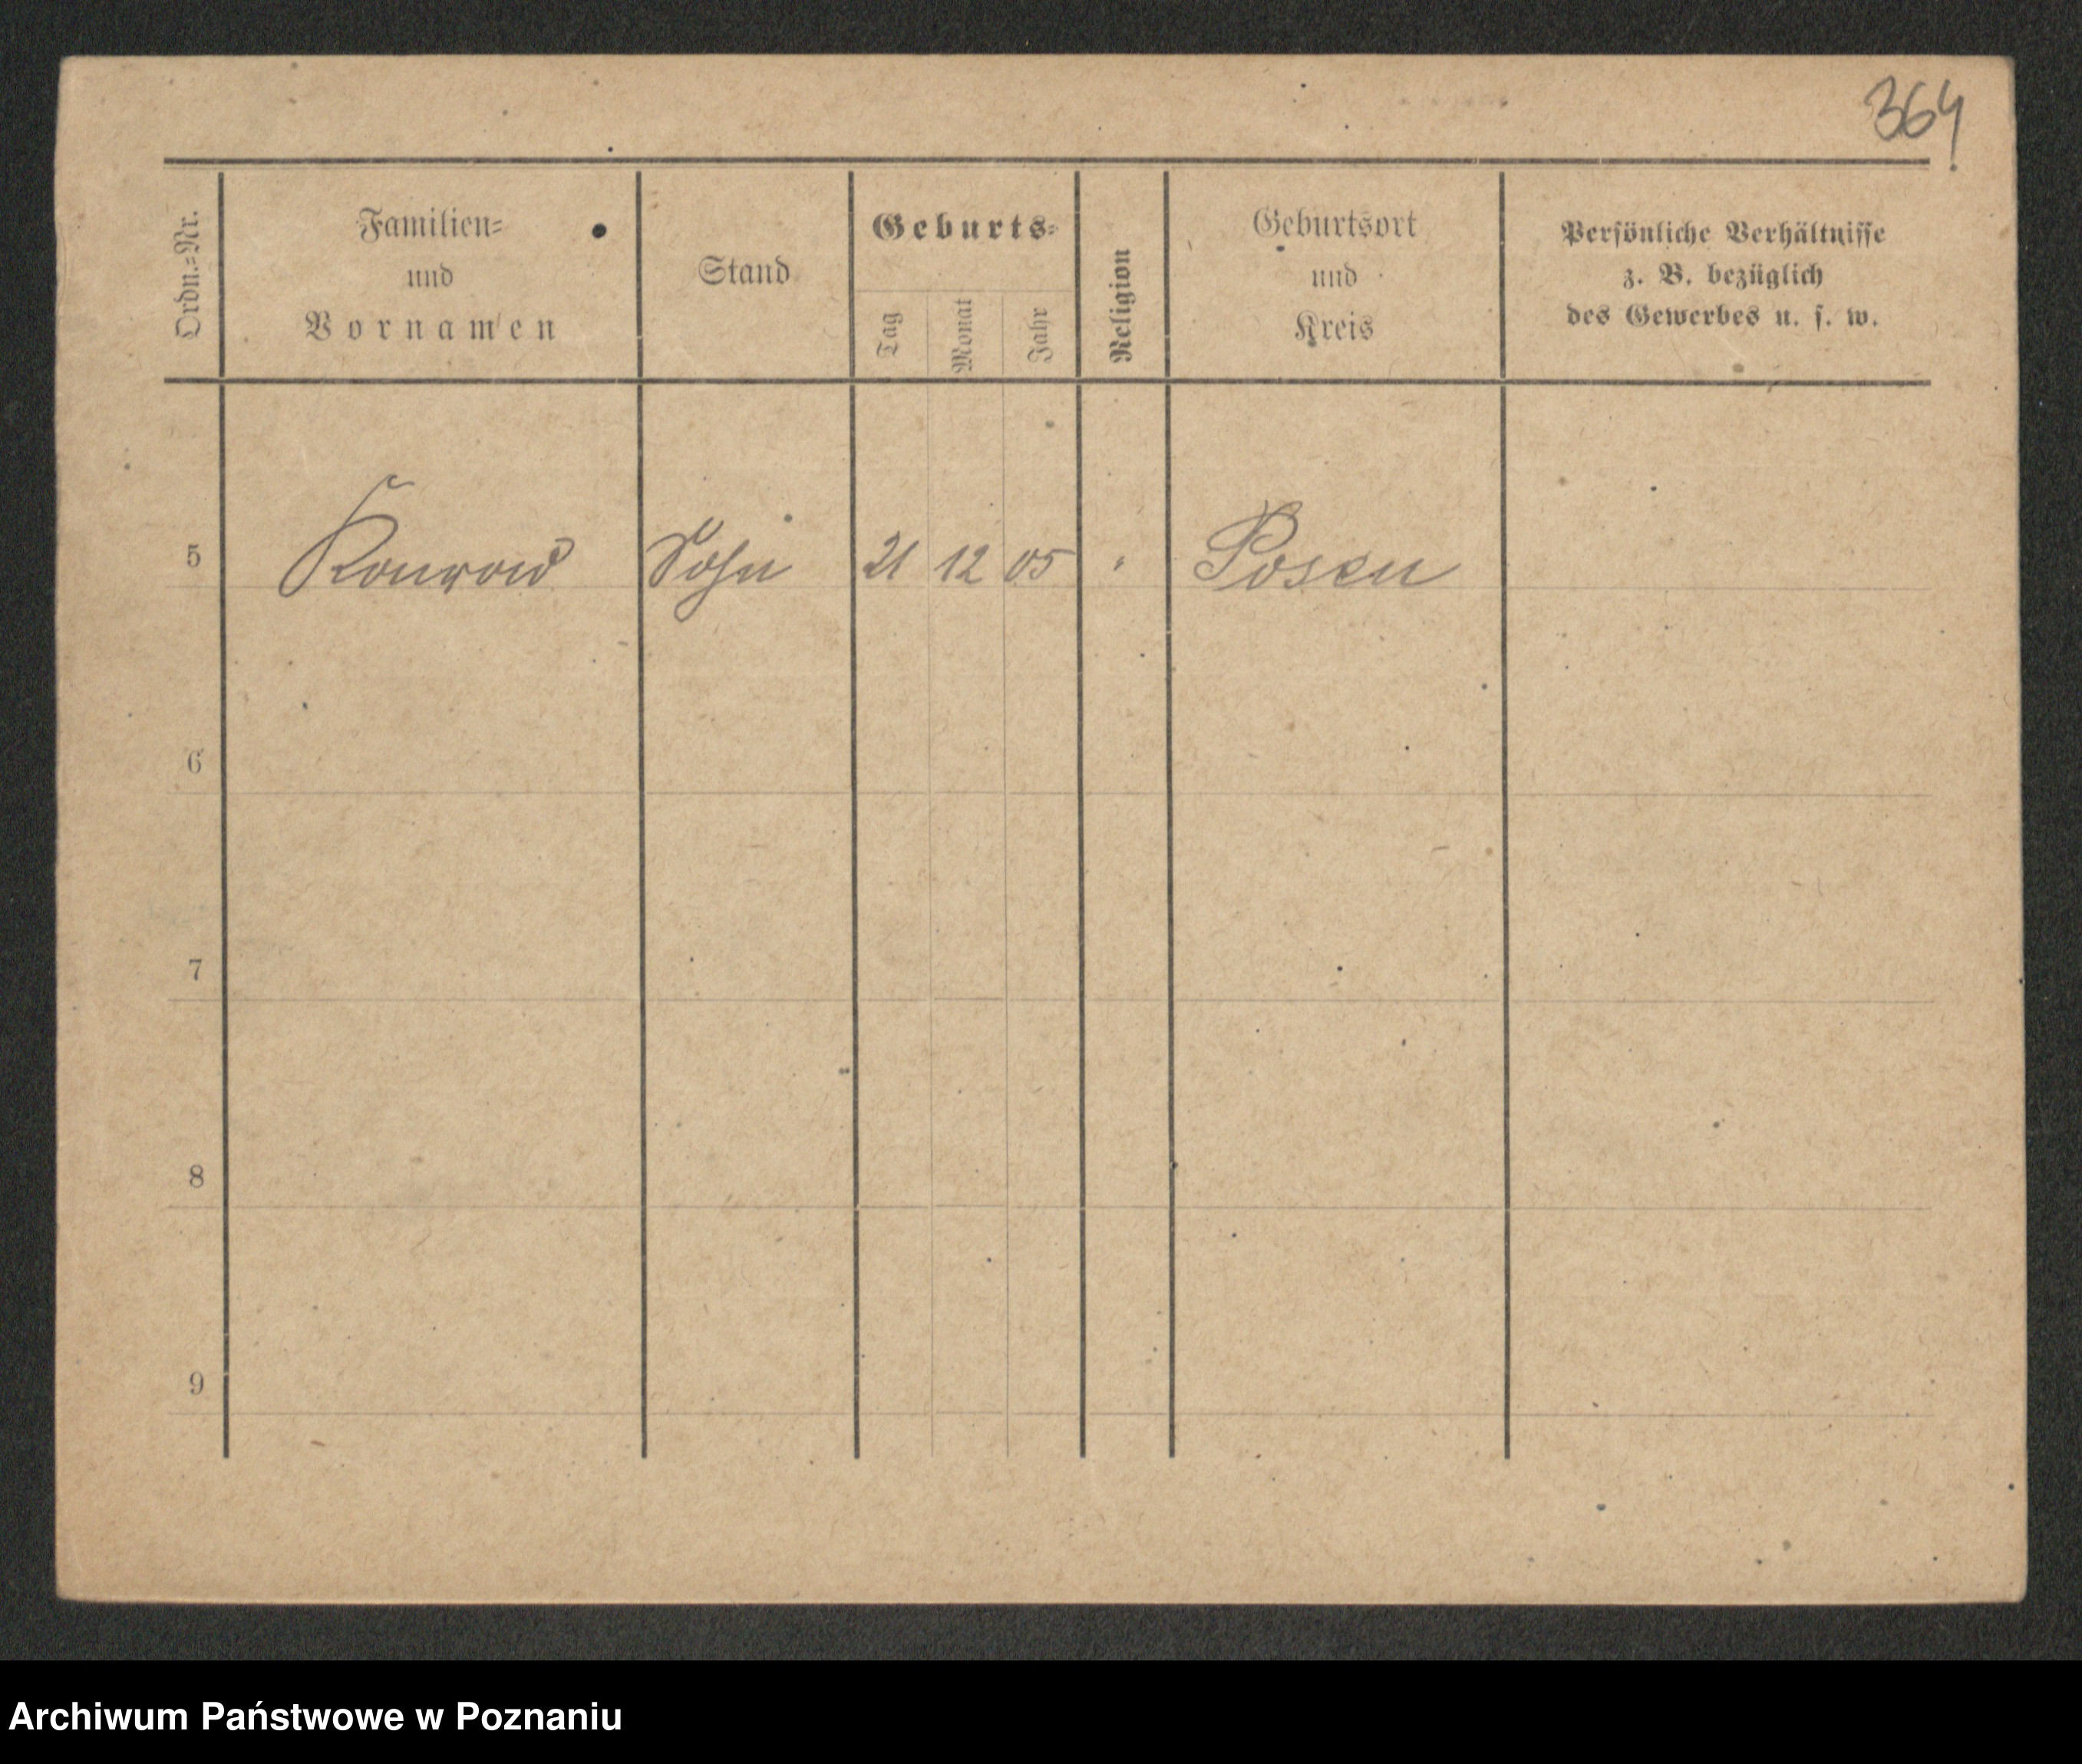 364
Ordn.=Nr.
Familien=
und
Vornamen
Stand
Geburts=
Tag
Monat
Jahr
Religion
Geburtsort
und
Kreis
Persönliche Verhältnisse
z. B. bezüglich
des Gewerbes u. s. w.
5 Konrad Sohn 21 12 05 " Posen
6
7
8
9
Archiwum Państwowe w Poznaniu